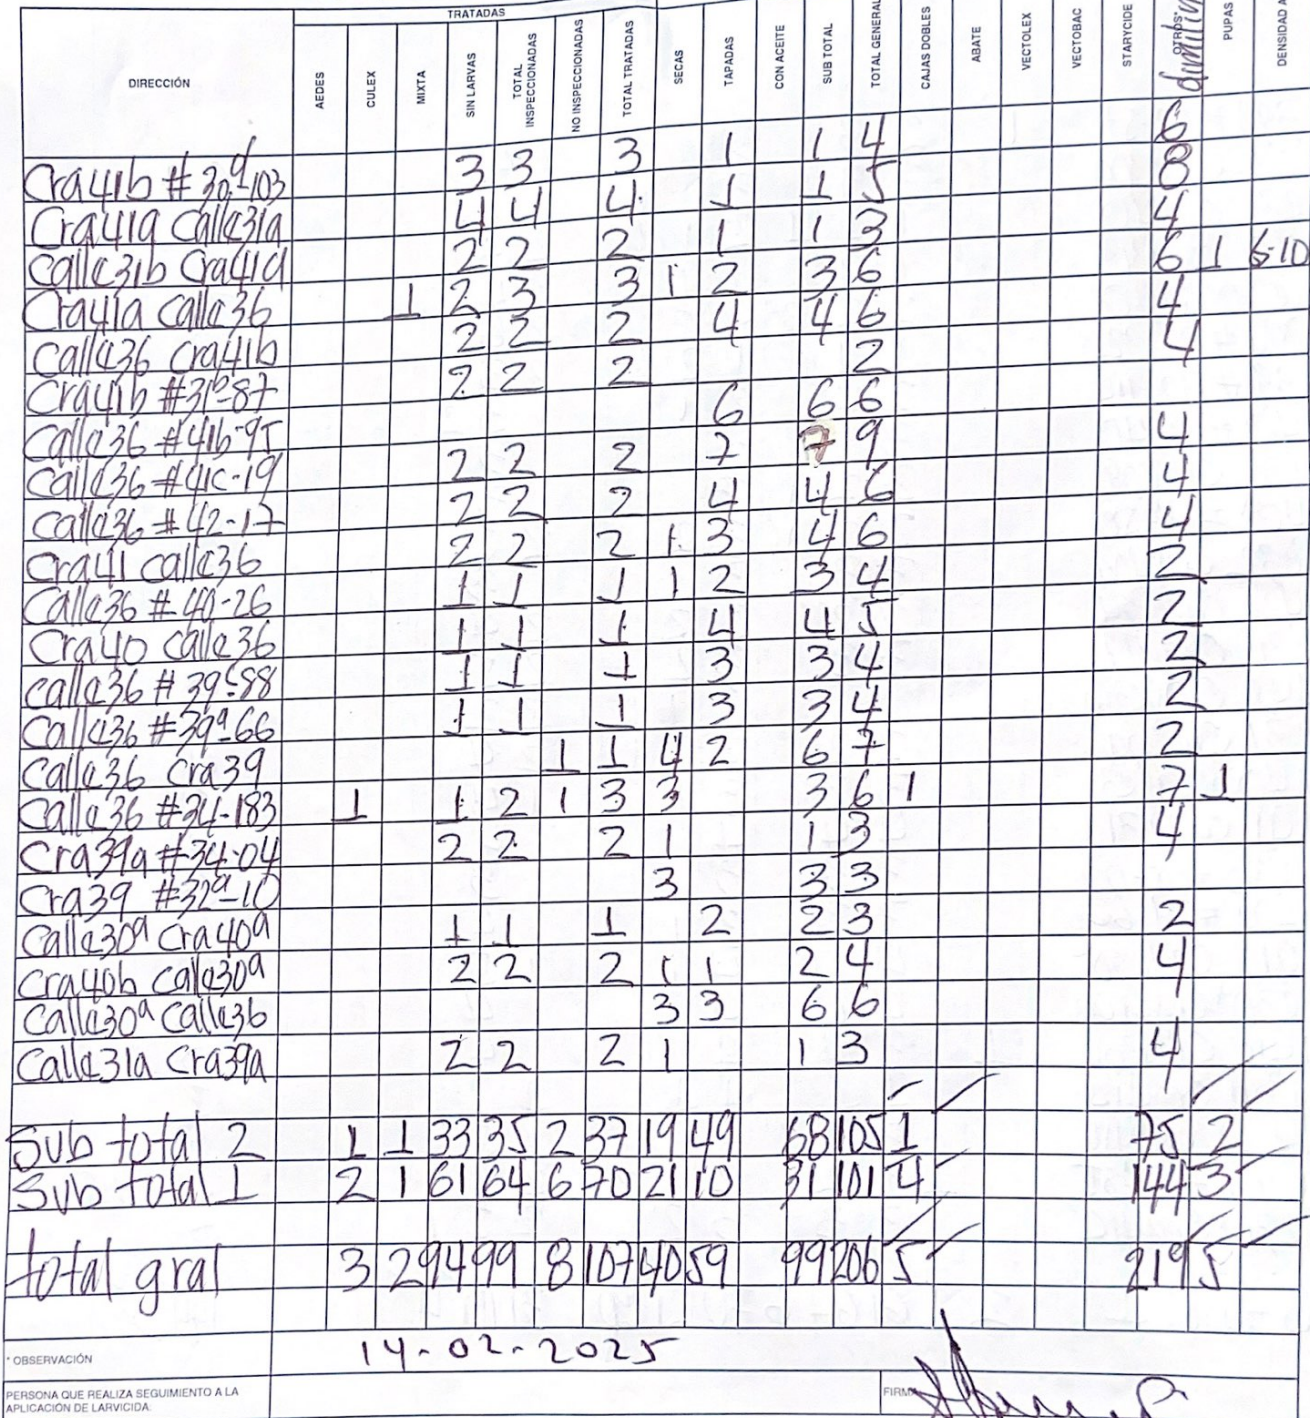 TRATADAS
DIRECCIÓN AEDES CULEX MIXTA SIN LARVAS TOTAL INSPECCIONADAS NO INSPECCIONADAS TOTAL TRATADAS SECAS TAPADAS CON ACEITE SUB TOTAL TOTAL GENERAL CAJAS DOBLES ABATE VECTOLEX VECTOBAC STARYCIDE OTROS* dimilin PUPAS DENSIDAD A
Cra41b # 30a-103 3 3 3 1 1 4 6
Cra41a calle31a 4 4 4 1 1 5 8
Calle31b Cra41a 2 2 2 1 1 3 4
Cra41a calle36 1 2 3 3 1 2 3 6 6 1 6-10
Calle36 Cra41b 2 2 2 4 4 6 4
Cra41b #31b-87 2 2 2 2 4
Calle36 #41b-95 6 6 6
Calle36 #41c-19 2 2 2 7 7 9 4
Calle36 #42-17 2 2 2 4 4 6 4
Cra41 calle36 2 2 2 1 3 4 6 4
Calle36 #40-26 1 1 1 1 2 3 4 2
Cra40 calle36 1 1 1 4 4 5 2
Calle36 #39c-88 1 1 1 3 3 4 2
Calle36 #39a-66 1 1 1 3 3 4 2
Calle36 Cra39 1 1 4 2 6 7 2
Calle36 #34-183 1 1 2 1 3 3 3 6 1 7 1
Cra39a #34-04 2 2 2 1 1 3 4
Cra39 #32a-10 3 3 3
Calle30a Cra40a 1 1 1 2 2 3 2
Cra40b calle30a 2 2 2 1 1 2 4 4
Calle30a calle36 3 3 6 6
Calle31a Cra39a 2 2 2 1 1 3 4
Sub total 2 1 1 33 35 2 37 19 49 68 105 1 75 2
Sub total 1 2 1 61 64 6 70 21 10 31 101 4 144 3
total gral 3 2 94 99 8 107 40 59 99 206 5 219 5
* OBSERVACIÓN 14-02-2025
PERSONA QUE REALIZA SEGUIMIENTO A LA APLICACIÓN DE LARVICIDA: FIRMA